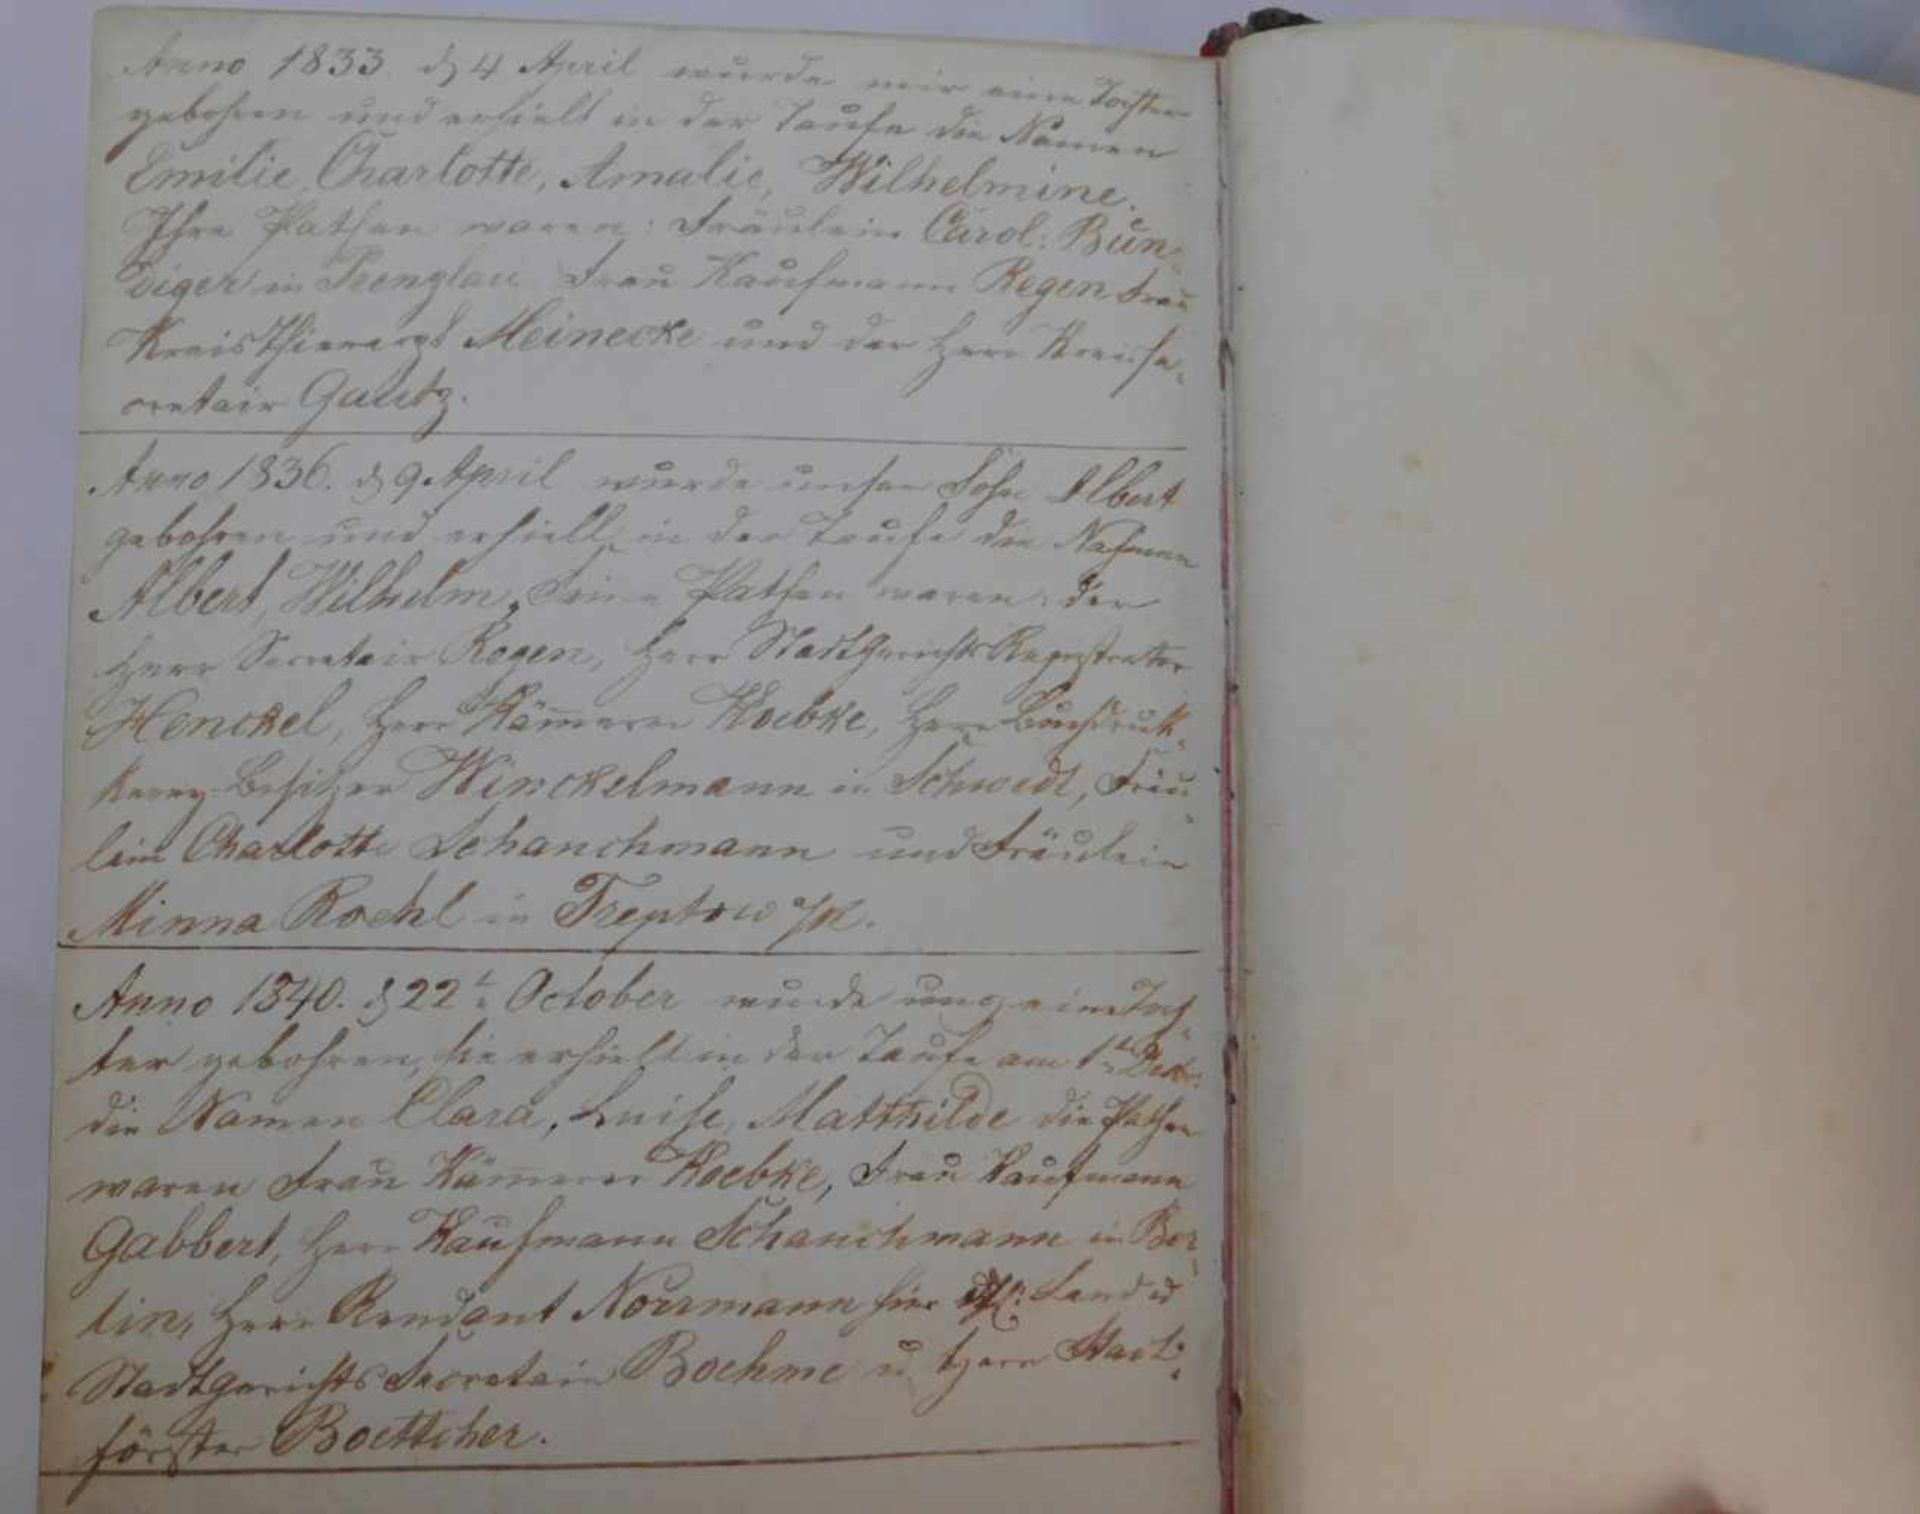 Anno 1833. d 4 April wurde mir eine Tochter
gebohren und erhielt in der Taufe die Namen
Emilie, Charlotte, Amalie, Wilhelmine.
Ihre Pathen waren: Fräulein Carol: Bün-
diger in Prenzlau Frau Kaufmann Regen Frau
Kreisthierarzt Meinecke und der Herr Kreisse-
cretair Gautz.
Anno 1836. d 9 April wurde unser Sohn Albert
gebohren und erhielt in der Taufe die Nahmen
Albert, Wilhelm, Seine Pathen waren: der
Herr Secretair Regen, Herr Stadtgerichts Registrator
Henckel, Herr Käm̅erer Koebke, Herr Buchdruk-
kerey-Besitzer Winckelmann in Schwedt, Fräu-
lein Charlotte Schanchmann und Fräulein
Minna Roehl in Treptow a/R.
Anno 1840. d 22t October wurde uns eine Toch-
ter gebohren, sie erhielt in der Taufe am 1t Decbr.
die Namen Clara, Luise, Matthilde die Pathen
waren Frau Käm̅erer Koebke, Frau Kaufmann
Gabbert, Herr Kaufmann Schanchmann in Ber-
lin, Herr Rendant Norrmann hier Land u
Stadtgerichts Secretair Boehme u. Herr Stadt-
förster Boettcher.